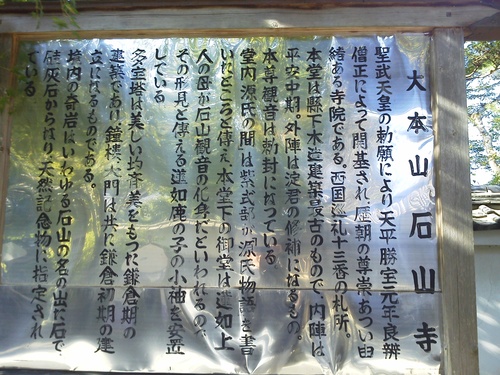 大本山石山寺
聖武天皇の勅願により天平勝宝元年良辨
僧正によって開基され、歴朝の尊崇あつい由
緒ある寺院である。西国巡礼十三番の札所。
本堂は縣下木造建築最古のもので、内陣は
平安中期。外陣は淀君の修補になるもの。
本尊観音は勅封になっている。
堂内源氏の間は紫式部が源氏物語を書
いたところと傳え、本堂下の御堂は蓮如上
人の母が石山観音の化身だといわれるので、
その形見と傳える蓮如鹿の子の小袖を安置
している
多宝塔は美しい均斉美をもつた鎌倉期の
建築であり、鐘楼、大門は共に鎌倉初期の建
立になるものである。
境内の奇岩はいわゆる石山の名の出た石で、
硅灰石からなり、天然記念物に指定され
ている